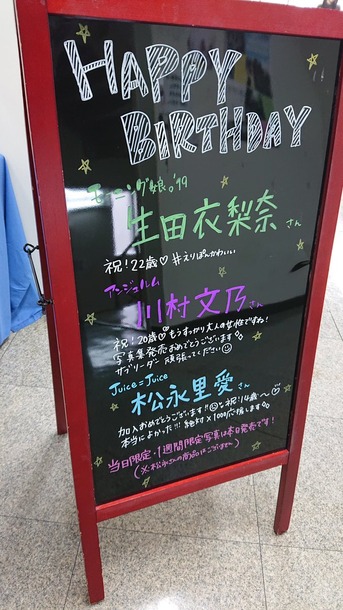 HAPPY
BIRTHDAY
モーニング娘。'19
生田衣梨奈さん
祝!22歳♡ #えりぽんかわいい
アンジュルム
川村文乃さん
祝!20歳♡もうすっかり大人の女性ですね!
写真集発売おめでとうございます
サブリーダー頑張ってください☺
Juice=Juice
松永里愛さん
加入おめでとうございます!!☺祝!14歳〜♡
本当によかった!!! 絶対×1000応援します
当日限定・1週間限定写真は本日発売です!
(※松永さんの商品はございません)